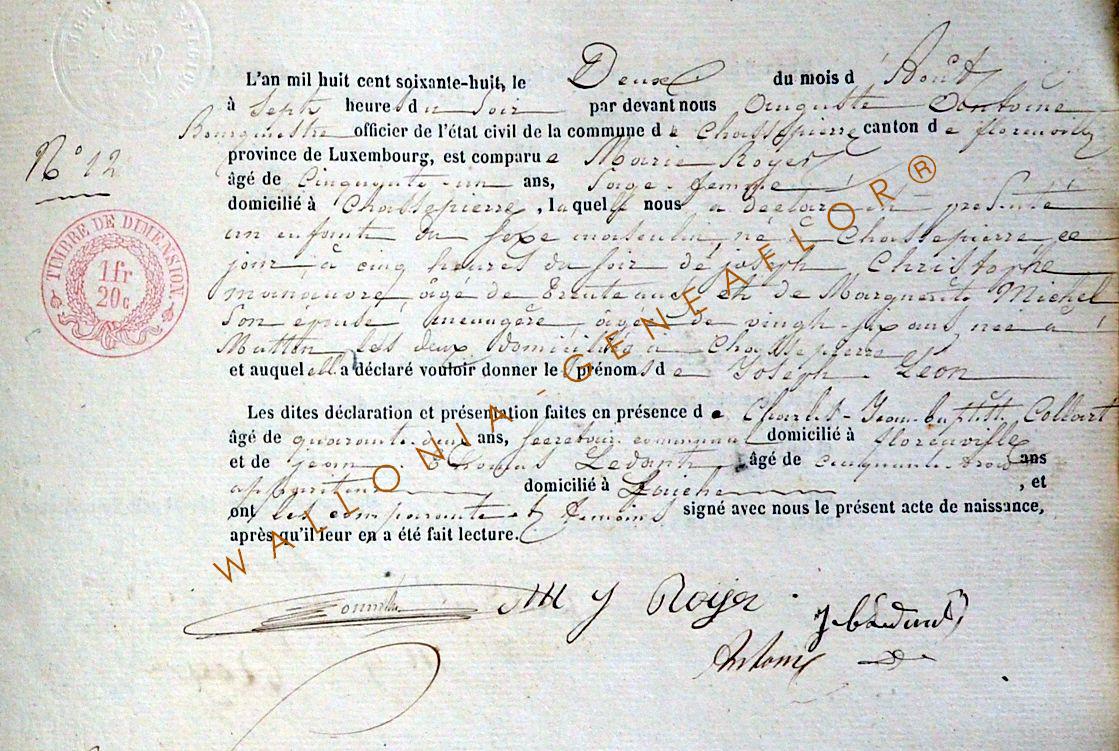 L'an mil huit cent soixante-huit, le Deux du mois d'Août
à Sept heure du Soir par devant nous Auguste Antoine
Bourgmestre officier de l'état civil de la commune de Chassepierre canton de florenville
province de Luxembourg, est comparue Marie Royer
N° 12
âgé de Cinquante-un ans, Sage-femme
domicilié à Chassepierre, laquelle nous a déclaré et présenté
un enfant du sexe masculin, né à Chassepierre ce
jour, à cinq heures du soir de joseph Christophe
manœuvre, âgé de trente ans, et de Marguerite Michel
son épouse, ménagère, âgée de vingt-six ans, née à
Matton, les deux domiciliés à Chassepierre
et auquel elle a déclaré vouloir donner les prénoms de Joseph Léon
Les dites déclaration et présentation faites en présence de Charles-Jean-baptiste Collart
âgé de quarante-deux ans, secrétaire communal domicilié à florenville
et de jean Thomas âgé de cinquante-trois ans
domicilié à , et
ont les comparante et témoins signé avec nous le présent acte de naissance,
après qu'il leur en a été fait lecture.
TIMBRE DE DIMENSION.
1 fr
20 c
M J Royer
Antoine
WALLONIA-GENEAFLOR®